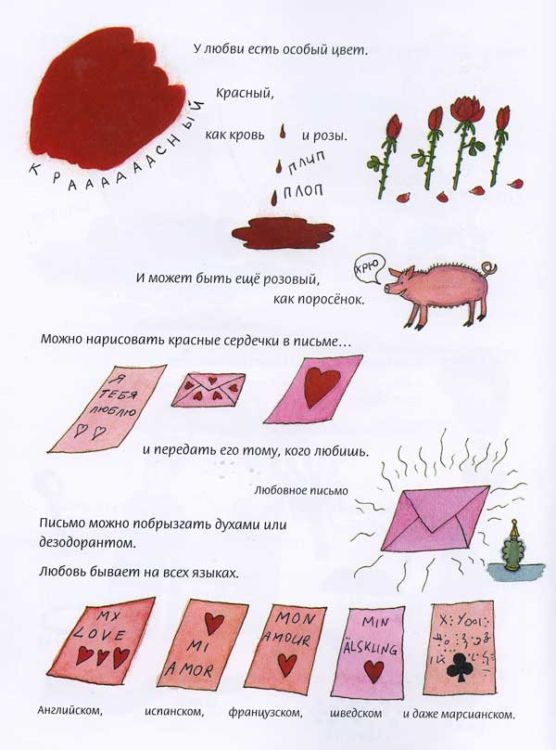 У любви есть особый цвет.
Красный,
КРААААААСНЫЙ
как кровь и розы.
ПЛИП
ПЛОП
И может быть ещё розовый,
ХРЮ
как поросёнок.
Можно нарисовать красные сердечки в письме…
Я
ТЕБЯ
ЛЮБЛЮ
и передать его тому, кого любишь.
Любовное письмо
Письмо можно побрызгать духами или
дезодорантом.
Любовь бывает на всех языках.
MY
LOVE
MI
AMOR
MON
AMOUR
MIN
ÄLSKLING
Английском, испанском, французском, шведском и даже марсианском.